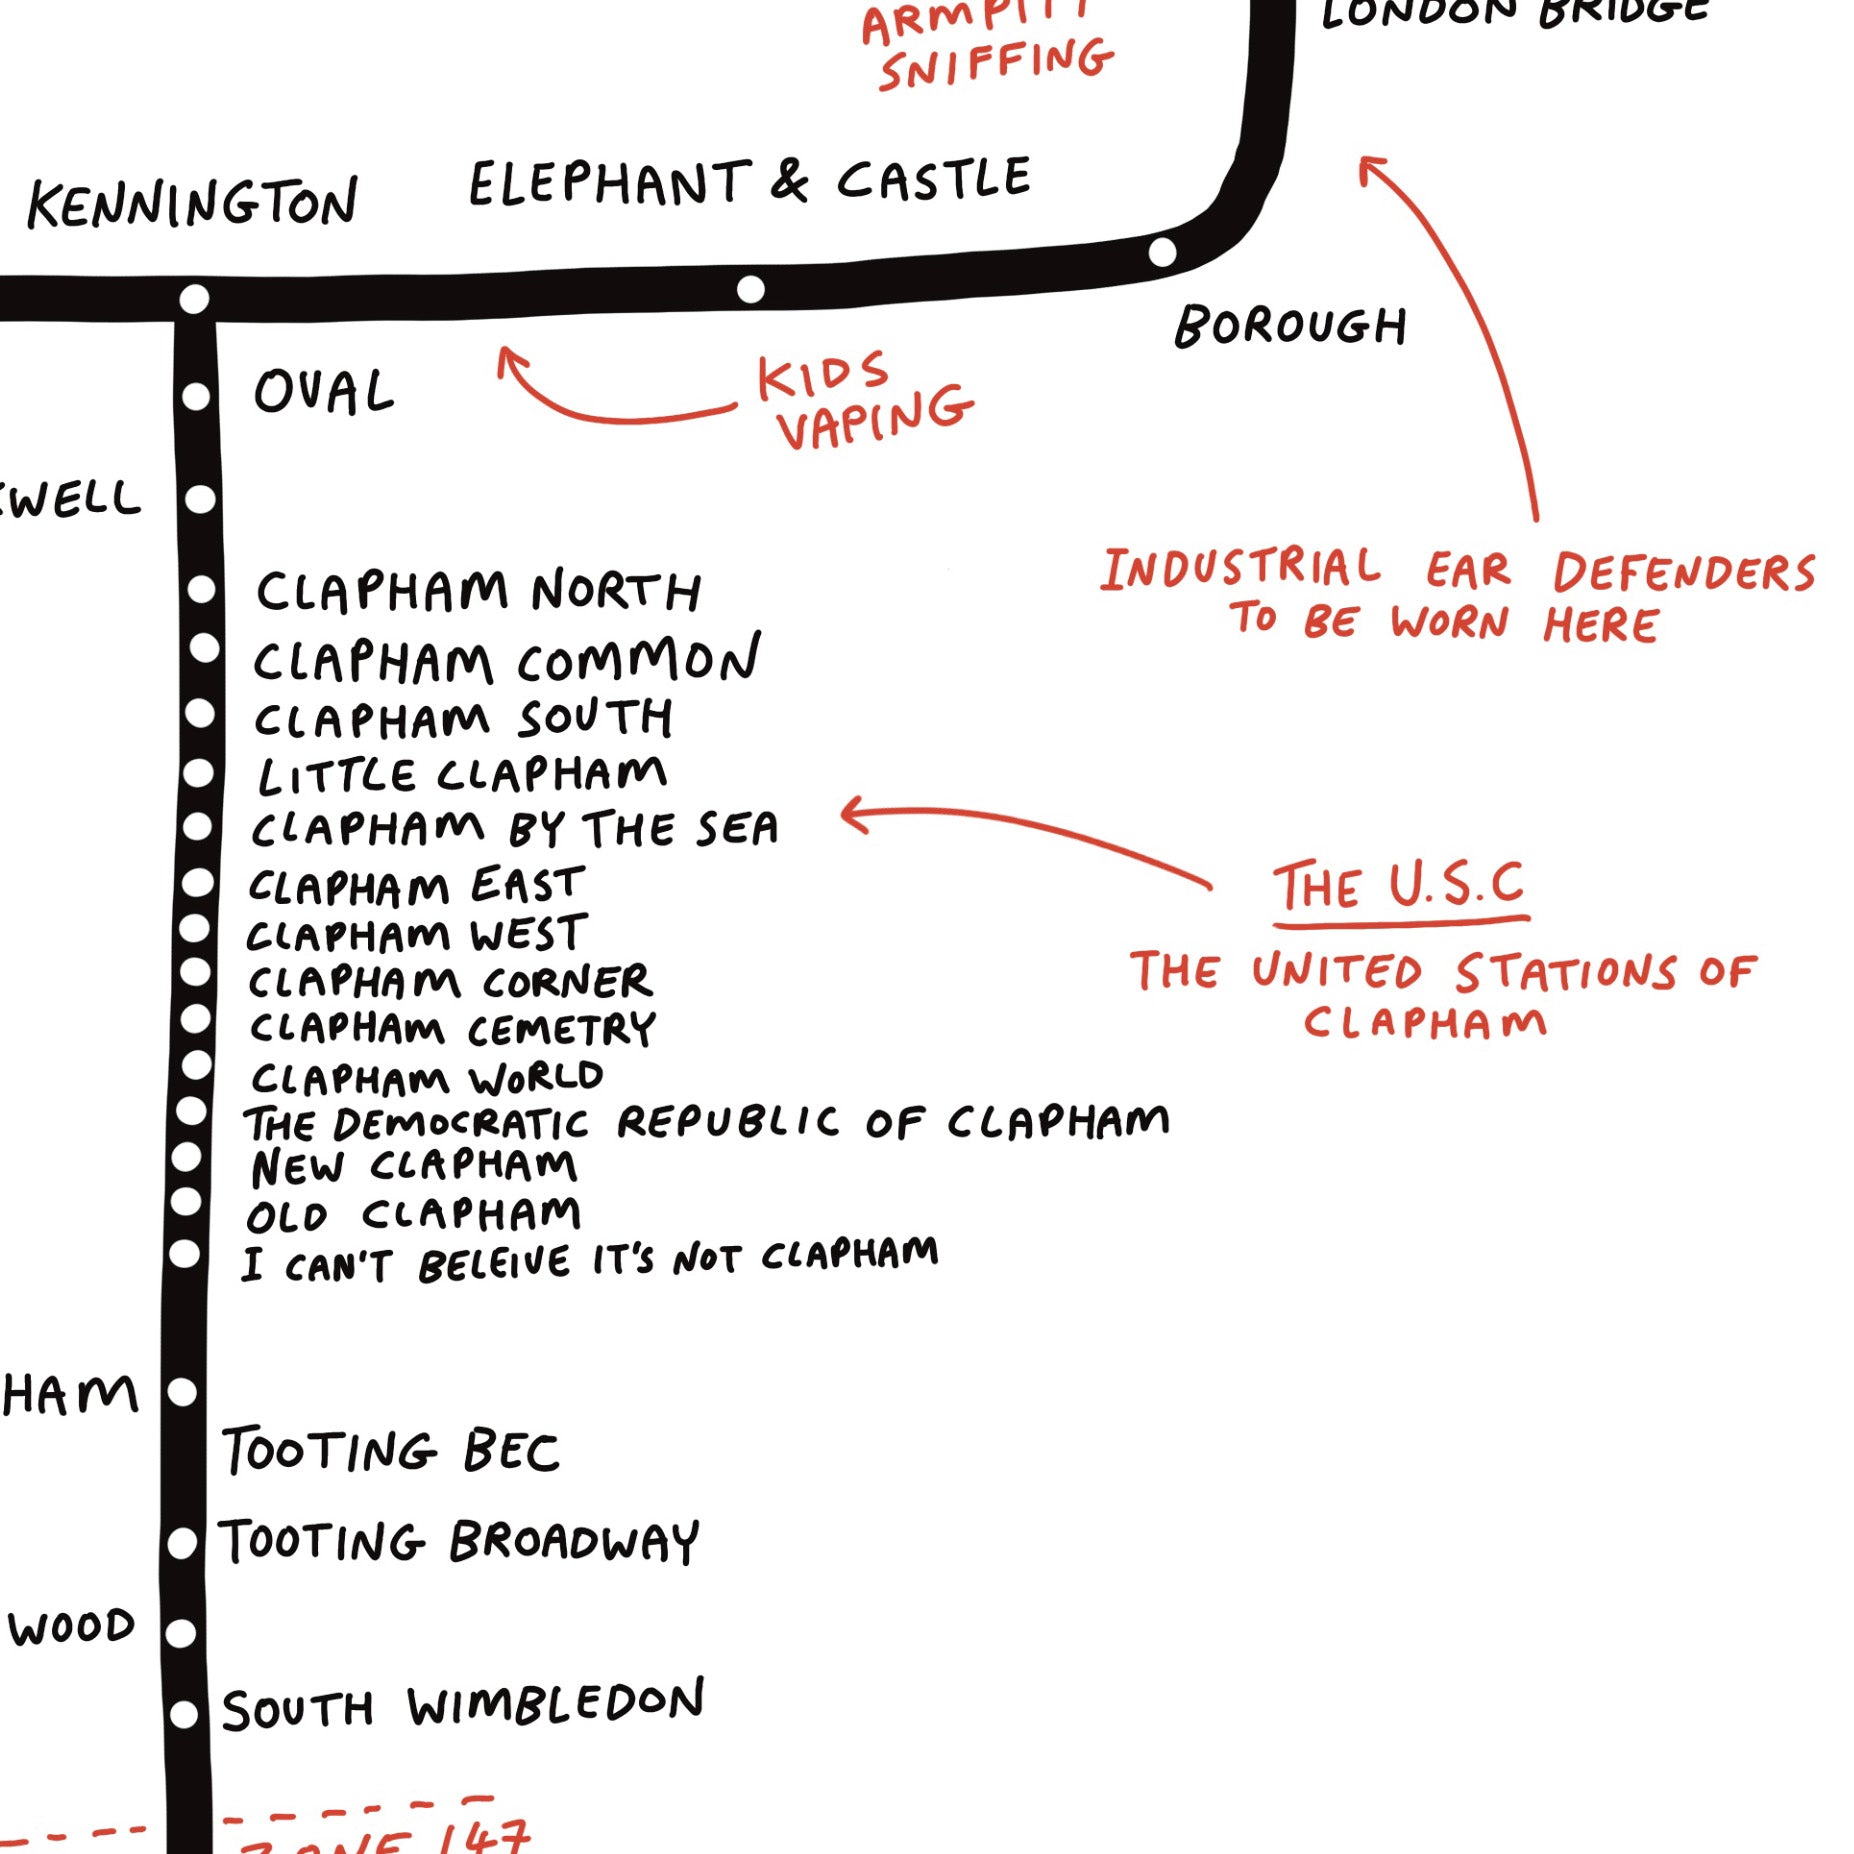 ARMPIT
SNIFFING
LONDON BRIDGE
KENNINGTON
ELEPHANT & CASTLE
BOROUGH
OVAL
KIDS
VAPING
WELL
INDUSTRIAL EAR DEFENDERS
TO BE WORN HERE
CLAPHAM NORTH
CLAPHAM COMMON
CLAPHAM SOUTH
LITTLE CLAPHAM
CLAPHAM BY THE SEA
THE U.S.C
THE UNITED STATIONS OF
CLAPHAM
CLAPHAM EAST
CLAPHAM WEST
CLAPHAM CORNER
CLAPHAM CEMETRY
CLAPHAM WORLD
THE DEMOCRATIC REPUBLIC OF CLAPHAM
NEW CLAPHAM
OLD CLAPHAM
I CAN'T BELEIVE IT'S NOT CLAPHAM
HAM
TOOTING BEC
TOOTING BROADWAY
WOOD
SOUTH WIMBLEDON
ZONE 147